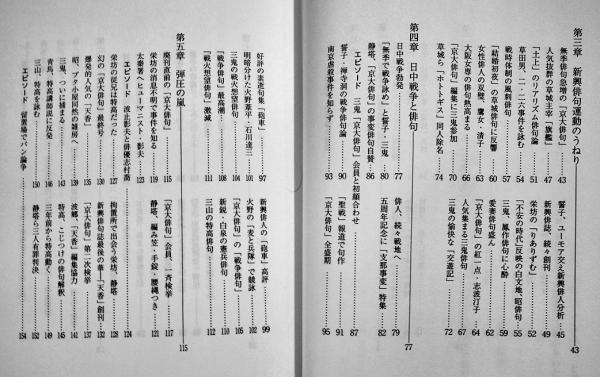 第三章 新興俳句運動のうねり 43
無季俳句急増の「京大俳句」 43
誓子、ユーモア交え新興俳人分析 45
人気抜群の草城主宰「旗艦」 47
新興俳誌、続々創刊 49
「土上」のリアリズム俳句論 51
栄坊の「りありずむ」 52
草田男、二・二六事件を詠む 54
「不安の時代」反映の白文地、昭俳句 55
戦時体制の風刺俳句 57
三鬼、鳳作俳句に心酔 59
「結婚初夜」の草城俳句に反響 60
愛妻俳句盛ん 62
女性俳人の双璧、鷹女・清子 63
「京大俳句」の紅一点・志波汀子 64
大阪女専の俳句熱高まる 66
人気集まる三鬼俳句 67
「京大俳句」編集に三鬼参加 70
三鬼の愉快な「交遊記」 72
草城ら「ホトトギス」同人除名 74
第四章 日中戦争と俳句 77
日中戦争勃発 77
俳人、続々戦地へ 79
「無季で戦争詠め」と誓子・三鬼 80
五周年記念に「支那事変」特集 82
静塔、「京大俳句」の事変俳句自賛 86
「聖戦」報道で句作 87
エピソード 三鬼「京大俳句」会員と初顔合わせ
誓子・禅寺洞の戦争俳句論 90
「京大俳句」全盛期 95
南京虐殺事件を知らず 93
好評の素逝句集『砲車』 97
新興俳人の『砲車』高評 99
明暗分けた火野葦平・石川達三 101
火野の『麦と兵隊』で競詠 102
三鬼の戦火想望俳句 104
「京大俳句」の「戦争俳句」 105
「戦争俳句」最高潮 106
新鋭・白泉の憲兵俳句 110
「戦火想望俳句」激減 111
三山の特高俳句 112
第五章 弾圧の嵐 115
廃刊直前の「京大俳句」 115
「京大俳句」会員、一斉検挙 117
栄坊の消息不明で事件を知る 119
静塔、編み笠・手錠・腰縄つき 121
太秦署のヒューマニスト・影夫 123
エピソード 波止影夫と俳優志村喬
栄坊の従兄は特高だった 127
拘置所で出会う栄坊、静塔 128
幻の「京大俳句」最終号 130
新興俳句誌最後の華「天香」創刊 132
爆発的人気の「天香」 135
「京大俳句」第二次検挙 137
昭、ブタ小屋同然の雑房へ 139
波郷、「天香」編集協力 141
三鬼、ついに捕まる 142
特高、こじつけの俳句解釈 145
青馬、特高講師説に反発 146
三年前から特高動く 149
三山、特高を詠む 150
静塔ら三人有罪判決 152
エピソード 留置場でパン論争 154